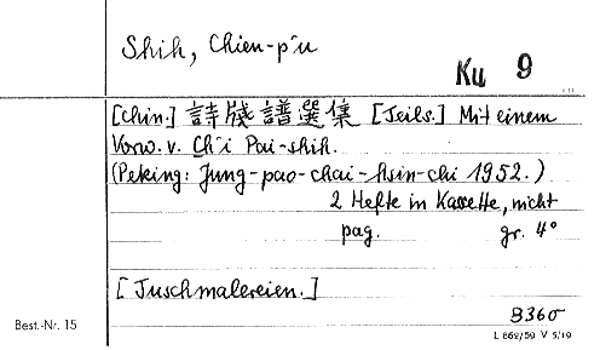 Shih, Chien-p'u
Ku 9
[Chin.] 詩牋譜選集 [Teils.] Mit einem
Vorw. v. Ch'i Pai-shih.
(Peking: Jung-pao-chai-hsin-chi 1952.)
2 Hefte in Kassette, nicht
pag. gr. 4°
[Tuschmalereien.]
B360
Best.-Nr. 15
L 862/59 V 5/19